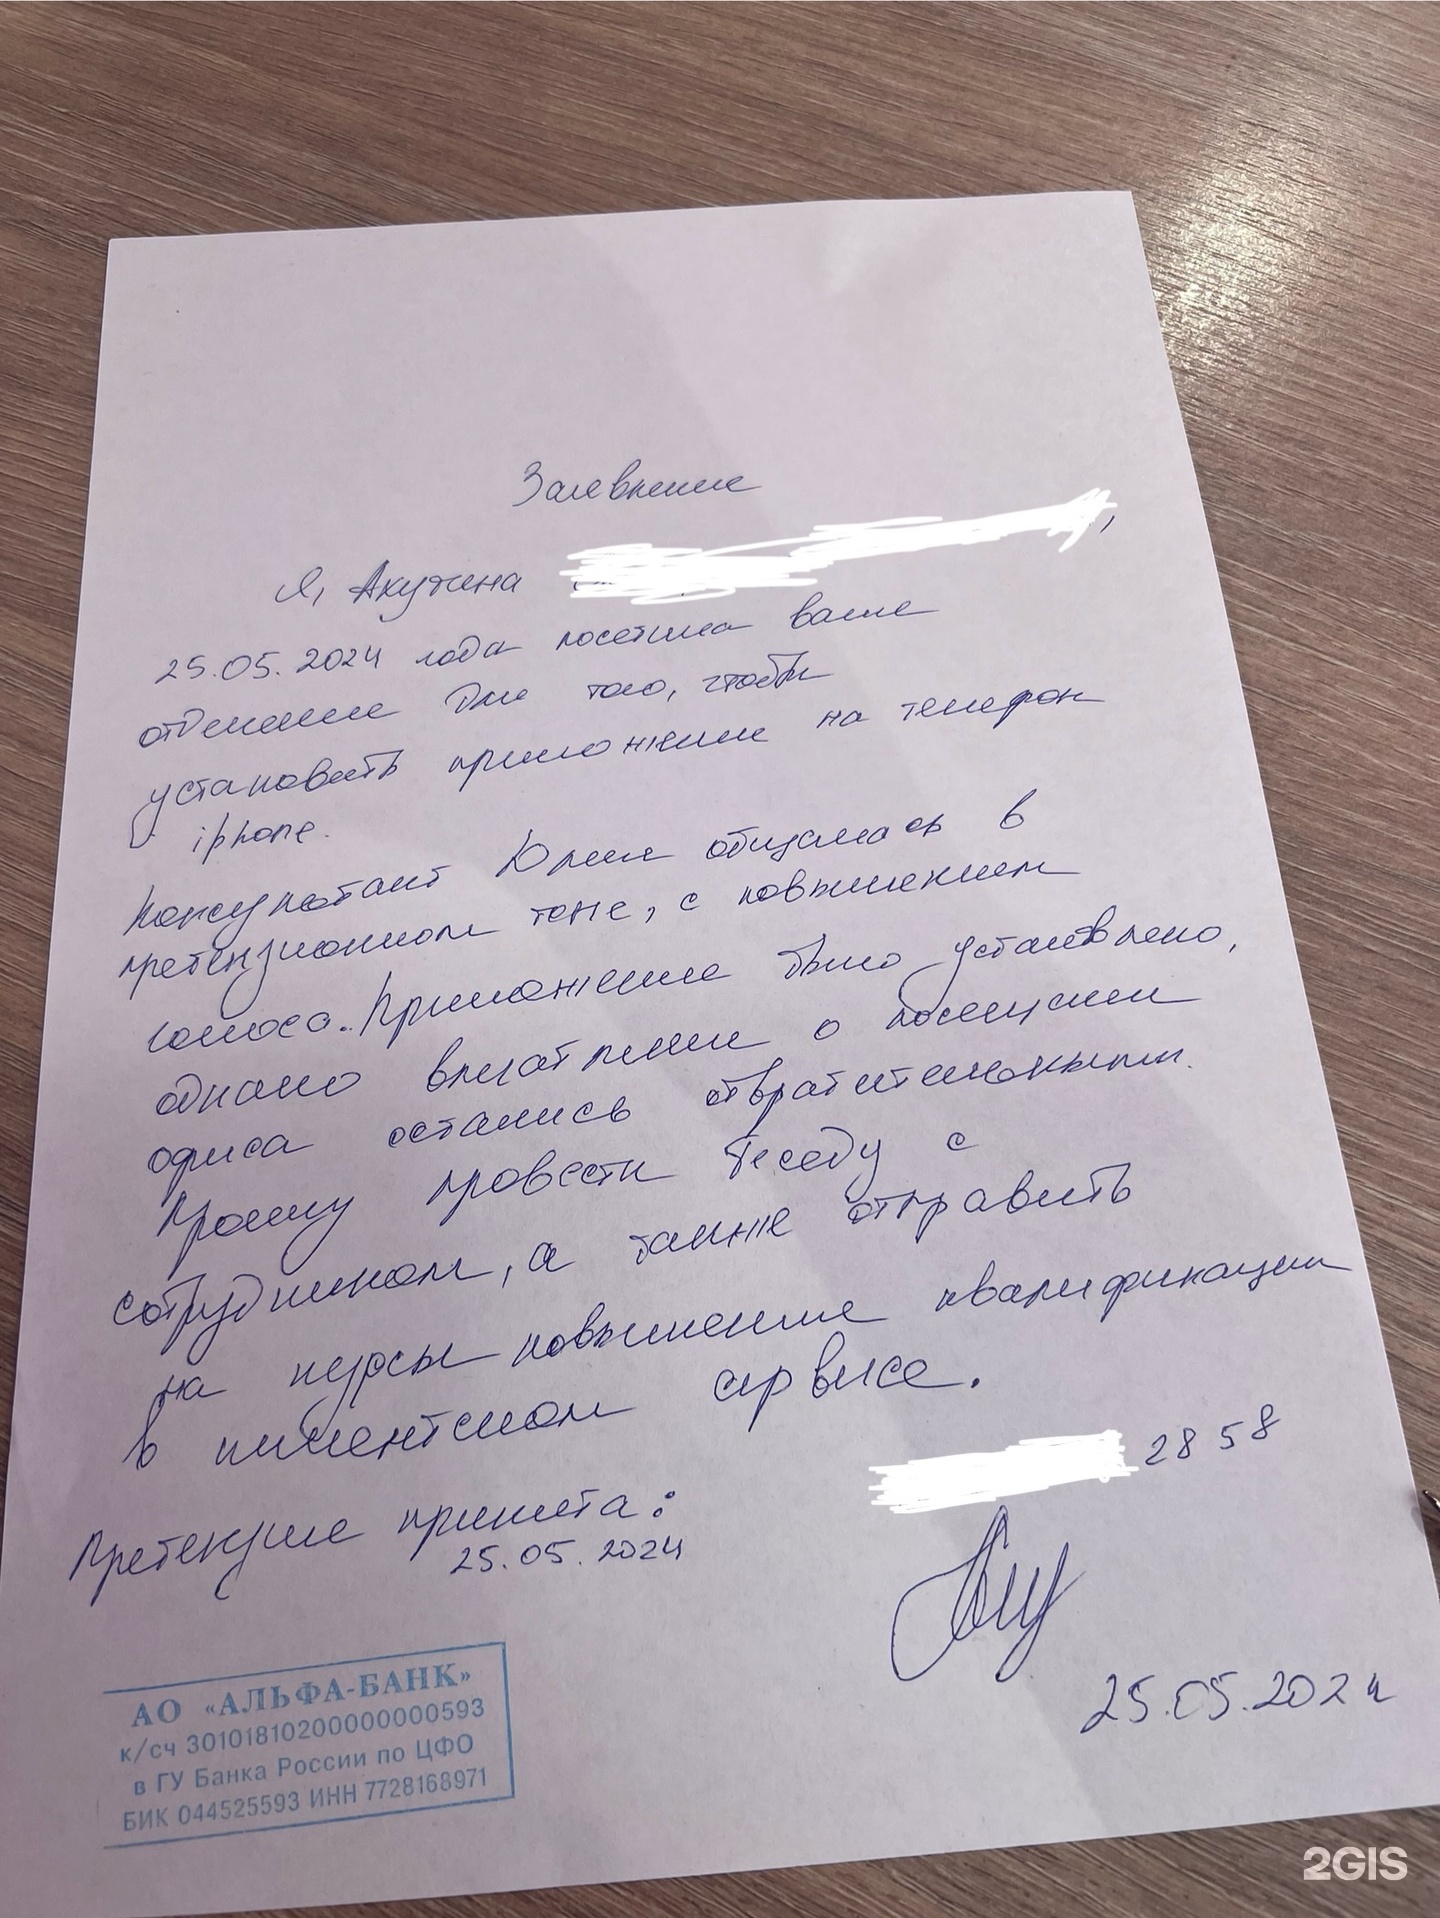 Заявление
Я, Акутина
25.05.2024 года посетила ваше
отделение для того, чтобы
установить приложение на телефон
iphone.
Консультант Юлия общалась в
претензионном тоне, с повышением
голоса. Приложение было установлено,
однако впечатление о посещении
офиса остались отвратительными.
Прошу провести беседу с
сотрудником, а также отправить
на курсы повышение квалификации
в клиентском сервисе.
2858
Претензие принята:
25.05.2024
25.05.2024
АО «АЛЬФА-БАНК»
к/сч 30101810200000000593
в ГУ Банка России по ЦФО
БИК 044525593 ИНН 7728168971
2GIS